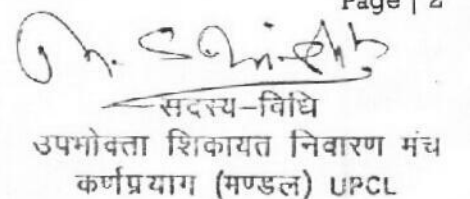 Page | 2
सदस्य-विधि
उपभोक्ता शिकायत निवारण मंच
कर्णप्रयाग (मण्डल) UPCL